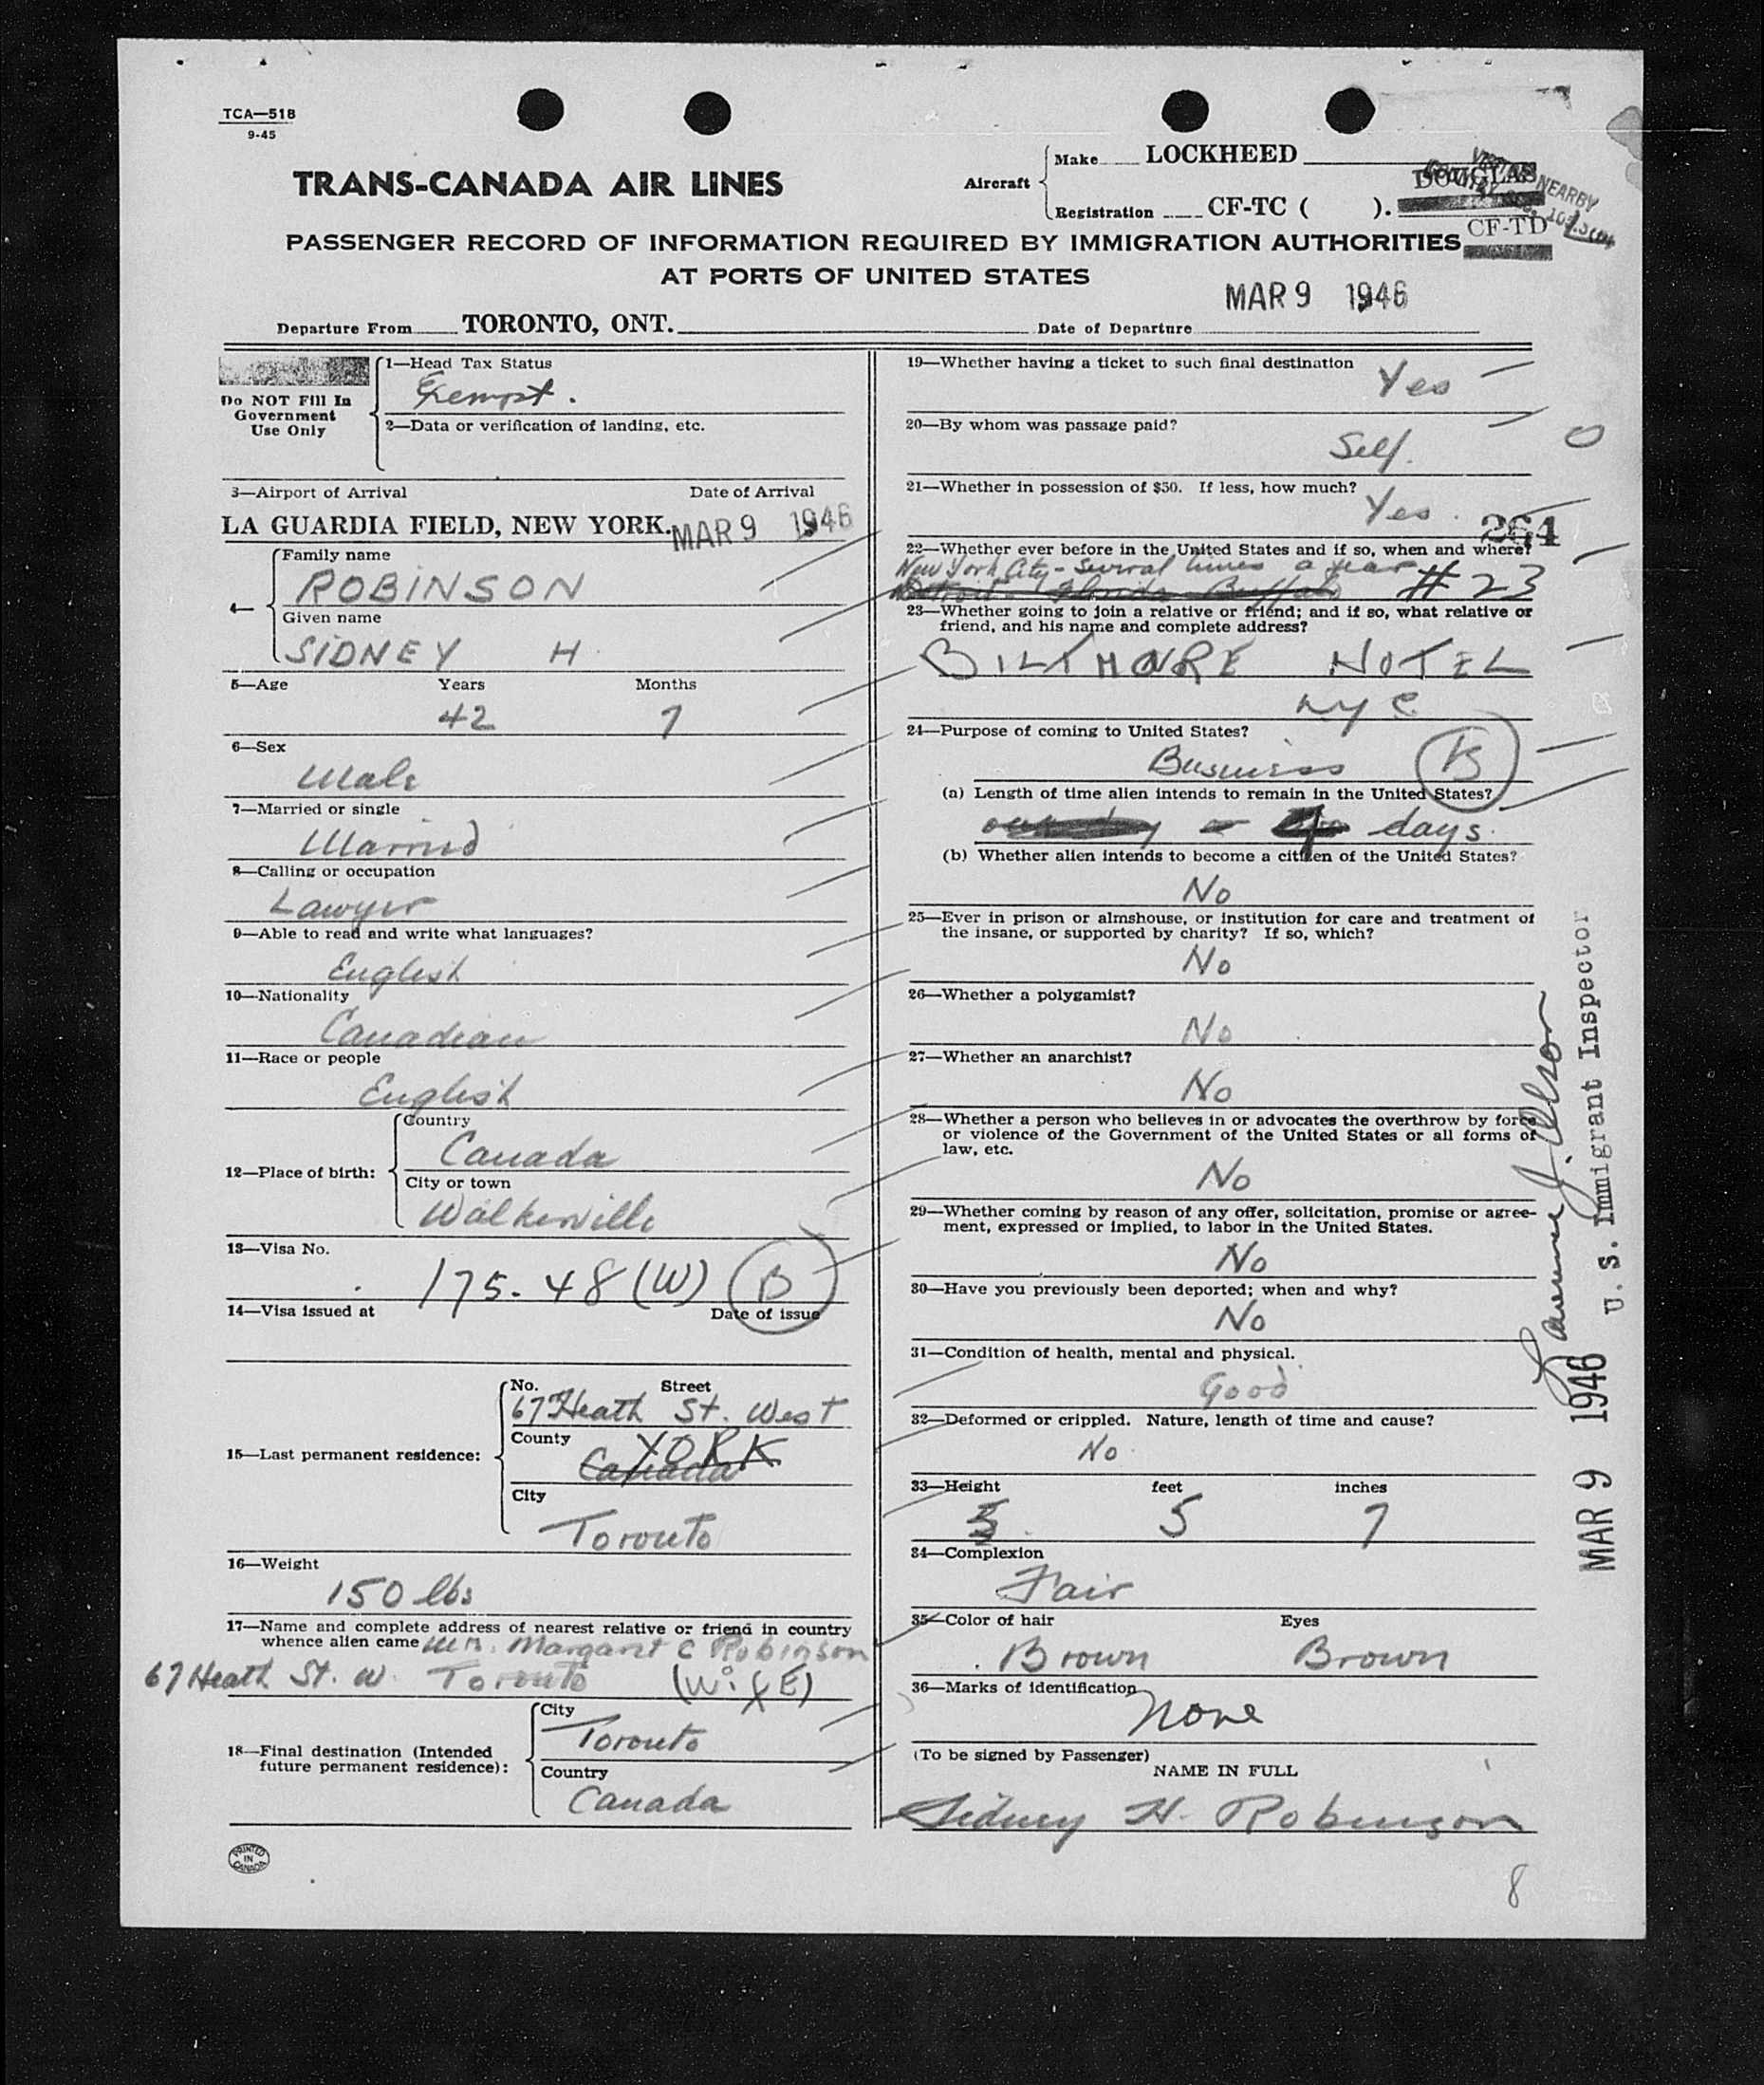 TCA—518
9-45
TRANS-CANADA AIR LINES
Aircraft
Make LOCKHEED
DOUGLAS
Registration CF-TC ( ).
CF-TD
NEARBY
PASSENGER RECORD OF INFORMATION REQUIRED BY IMMIGRATION AUTHORITIES
AT PORTS OF UNITED STATES
MAR 9 1946
Departure From TORONTO, ONT. Date of Departure
Do NOT Fill In
Government
Use Only
1—Head Tax Status
Exempt.
2—Data or verification of landing, etc.
3—Airport of Arrival Date of Arrival
LA GUARDIA FIELD, NEW YORK. MAR 9 1946
4—
Family name
ROBINSON
Given name
SIDNEY H
5—Age Years Months
42 7
6—Sex
Male
7—Married or single
Married
8—Calling or occupation
Lawyer
9—Able to read and write what languages?
English
10—Nationality
Canadian
11—Race or people
English
12—Place of birth:
Country
Canada
City or town
Walkerville
13—Visa No.
175-48 (W) B
14—Visa issued at Date of issue
15—Last permanent residence:
No. Street
67 Heath St. West
County
YORK
Canada
City
Toronto
16—Weight
150 lbs
17—Name and complete address of nearest relative or friend in country
whence alien came Mrs. Margaret C Robinson
67 Heath St. W. Toronto (WifE)
18—Final destination (Intended
future permanent residence):
City
Toronto
Country
Canada
PRINTED
IN
CANADA
19—Whether having a ticket to such final destination
Yes
20—By whom was passage paid?
Self.
21—Whether in possession of $50. If less, how much?
Yes.
264
22—Whether ever before in the United States and if so, when and where?
New York City - Several times a year
Detroit - Florida - Buffalo # 23
23—Whether going to join a relative or friend; and if so, what relative or
friend, and his name and complete address?
BILTMORE HOTEL
NYC
24—Purpose of coming to United States?
Business B
(a) Length of time alien intends to remain in the United States?
4 days.
(b) Whether alien intends to become a citizen of the United States?
No
25—Ever in prison or almshouse, or institution for care and treatment of
the insane, or supported by charity? If so, which?
No
26—Whether a polygamist?
No
27—Whether an anarchist?
No
28—Whether a person who believes in or advocates the overthrow by force
or violence of the Government of the United States or all forms of
law, etc.
No
29—Whether coming by reason of any offer, solicitation, promise or agree-
ment, expressed or implied, to labor in the United States.
No
30—Have you previously been deported; when and why?
No
31—Condition of health, mental and physical.
Good
32—Deformed or crippled. Nature, length of time and cause?
No
33—Height feet inches
5 7
34—Complexion
Fair
35—Color of hair Eyes
Brown Brown
36—Marks of identification
None
(To be signed by Passenger)
NAME IN FULL
Sidney H. Robinson
8
Lawrence J. Olson
U. S. Immigrant Inspector
MAR 9 1946